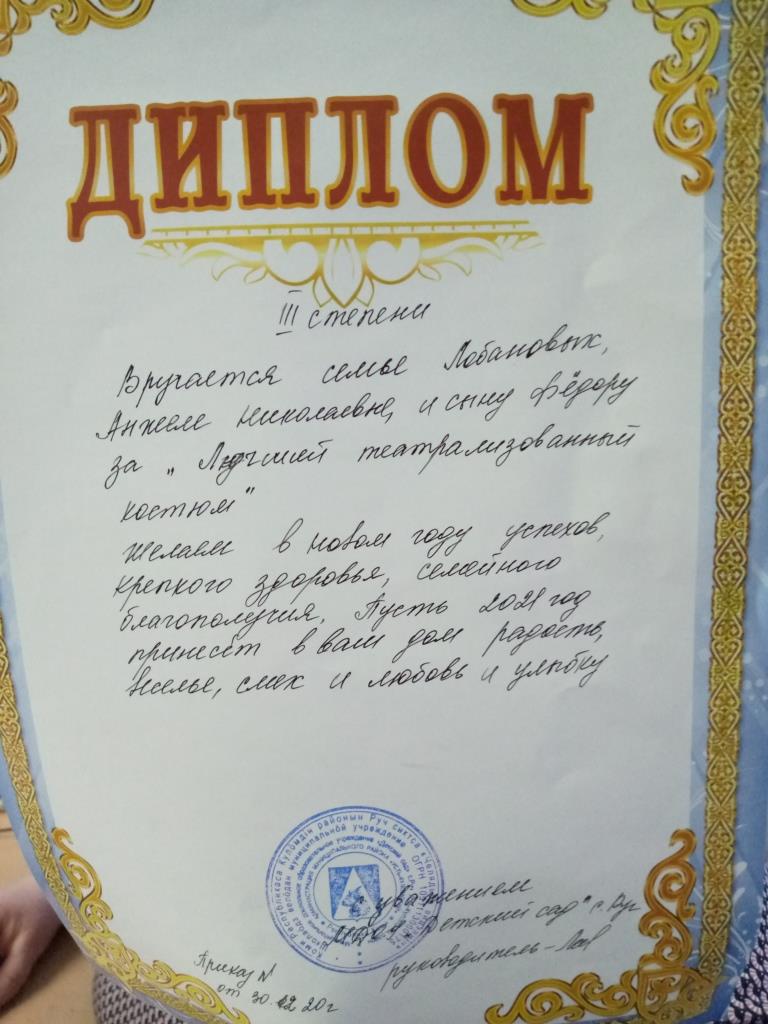 ДИПЛОМ
III степени
Вручается семье Лобановых,
Анжеле Николаевне, и сыну Фёдору
за „Лучший театрализованный
костюм"
Желаем в новом году успехов,
крепкого здоровья, семейного
благополучия. Пусть 2021 год
принесёт в ваш дом радость,
веселье, смех и любовь и улыбку
Коми Республикаса Кулӧмдін районын Руч сиктса «Челядь
школаӧдз велӧдан муниципальнӧй учреждение ОГРН
с уважением
МДОУ „Детский сад" с. Руч
руководитель -
Приказ №
от 30.12.20г